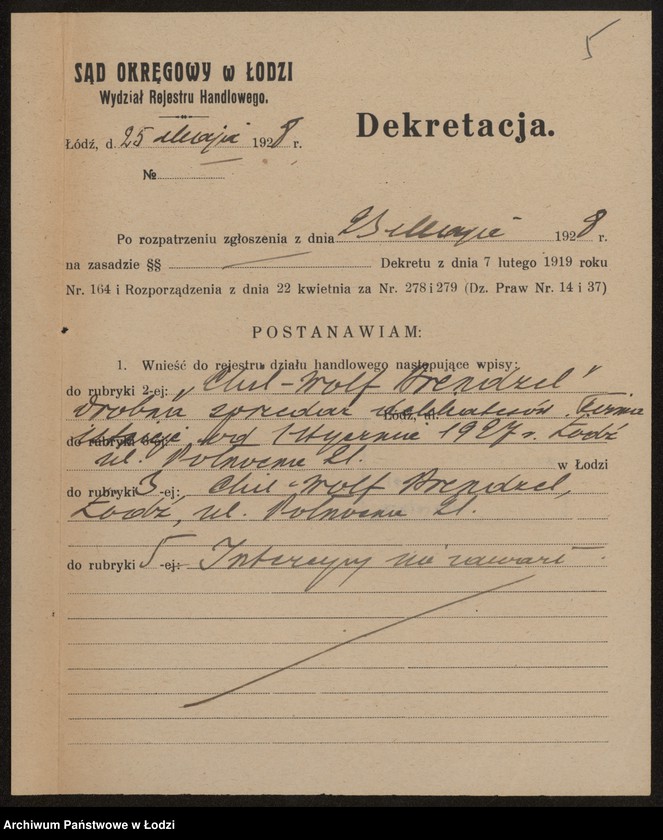 5
SĄD OKRĘGOWY w ŁODZI
Wydział Rejestru Handlowego.
Łódź, d. 25 Maja 1928 r.
Dekretacja.
№
Po rozpatrzeniu zgłoszenia z dnia 23 Maja 1928 r.
na zasadzie §§ Dekretu z dnia 7 lutego 1919 roku
Nr. 164 i Rozporządzenia z dnia 22 kwietnia za Nr. 278 i 279 (Dz. Praw Nr. 14 i 37)
POSTANAWIAM:
1. Wnieść do rejestru działu handlowego następujące wpisy:
do rubryki 2-ej: „Chil-Wolf Brendzel"
Drobna sprzedaż delikatesów. Firma
istnieje od 1 stycznia 1927 r. Łódź
ul. Północna 21. w Łodzi
do rubryki 3-ej: Chil-Wolf Brendzel,
Łódź, ul. Północna 21.
do rubryki 5-ej: Intercyzy nie zawarł
Archiwum Państwowe w Łodzi